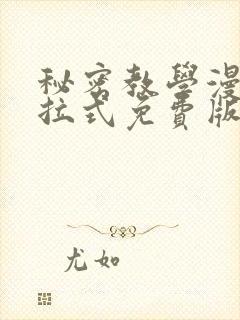 秘密教學漫
拉式免費版
尤如